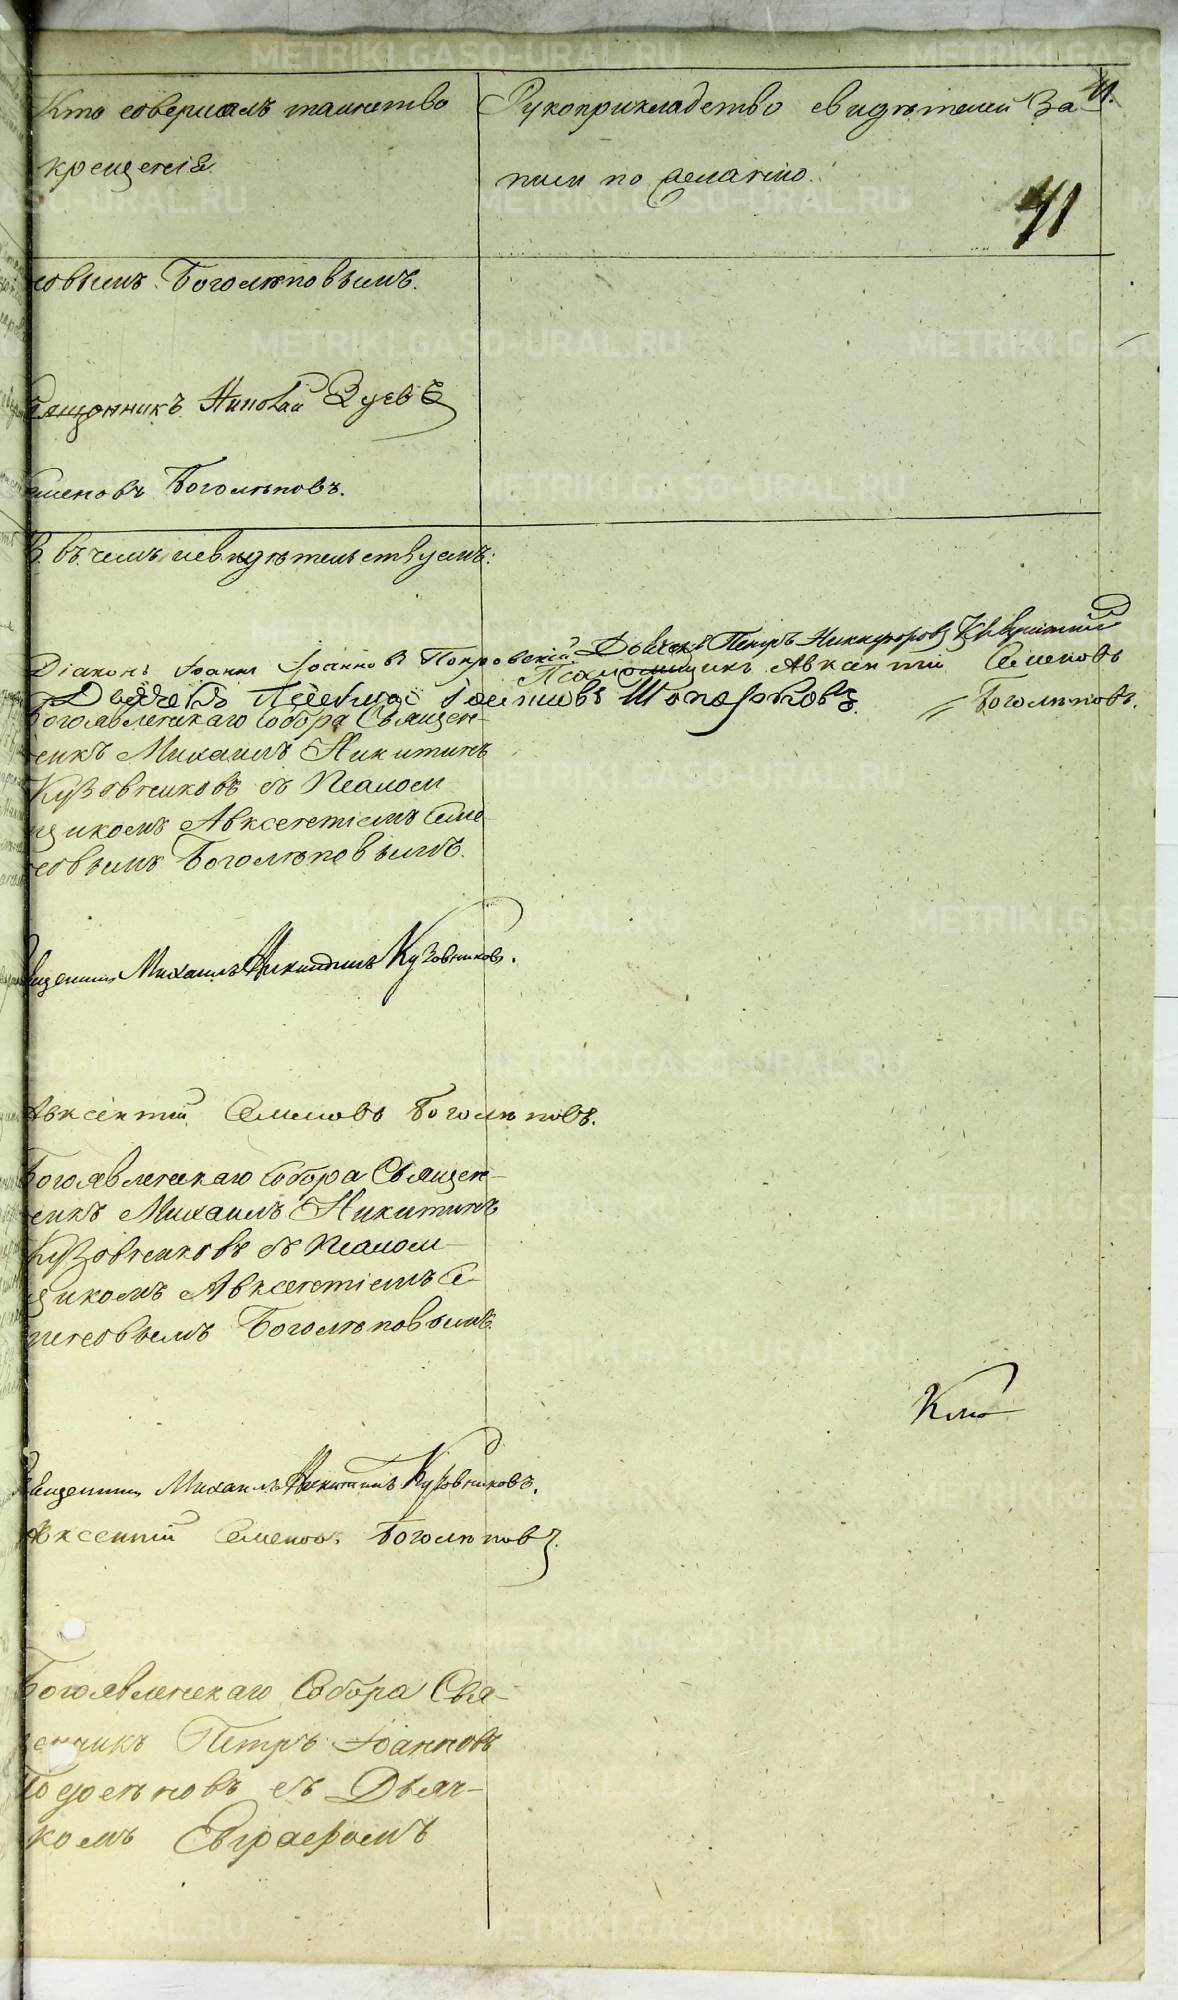 Кто совершалъ таинство Рукоприкладство свидѣтелей за 41.
крещенія. писи по желанію.
41
новымъ Боголѣповымъ.
Священникъ Николай Зуевъ
Семеновъ Боголѣповъ.
въ чемъ и свидѣтельствуемъ:
Діаконъ Іоаннъ Іоанновъ Покровскій Дьячекъ Петръ Никифоровъ
Псаломщикъ Авксентій Семеновъ
Боголѣповъ.
Богоявленскаго Собора Священ-
никъ Михаилъ Никитинъ
Кузовниковъ съ Псалом
щикомъ Авксентіемъ Семе
новымъ Боголѣповымъ.
Священникъ Михаилъ Никитинъ Кузовниковъ.
Авксентій Семеновъ Боголѣповъ.
Богоявленскаго Собора Священ-
никъ Михаилъ Никитинъ
Кузовниковъ съ Псалом-
щикомъ Авксентіемъ Се-
меновымъ Боголѣповымъ.
Священникъ Михаилъ Никитинъ Кузовниковъ.
Авксентій Семеновъ Боголѣповъ.
Богоявленскаго Собора Свя-
щенникъ Петръ Іоанновъ
съ Дьяч-
комъ Евграфомъ
METRIKI.GASO-URAL.RU